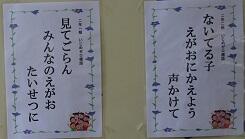 ないてる子
えがおにかえよう
声かけて
見てごらん
みんなのえがお
たいせつに